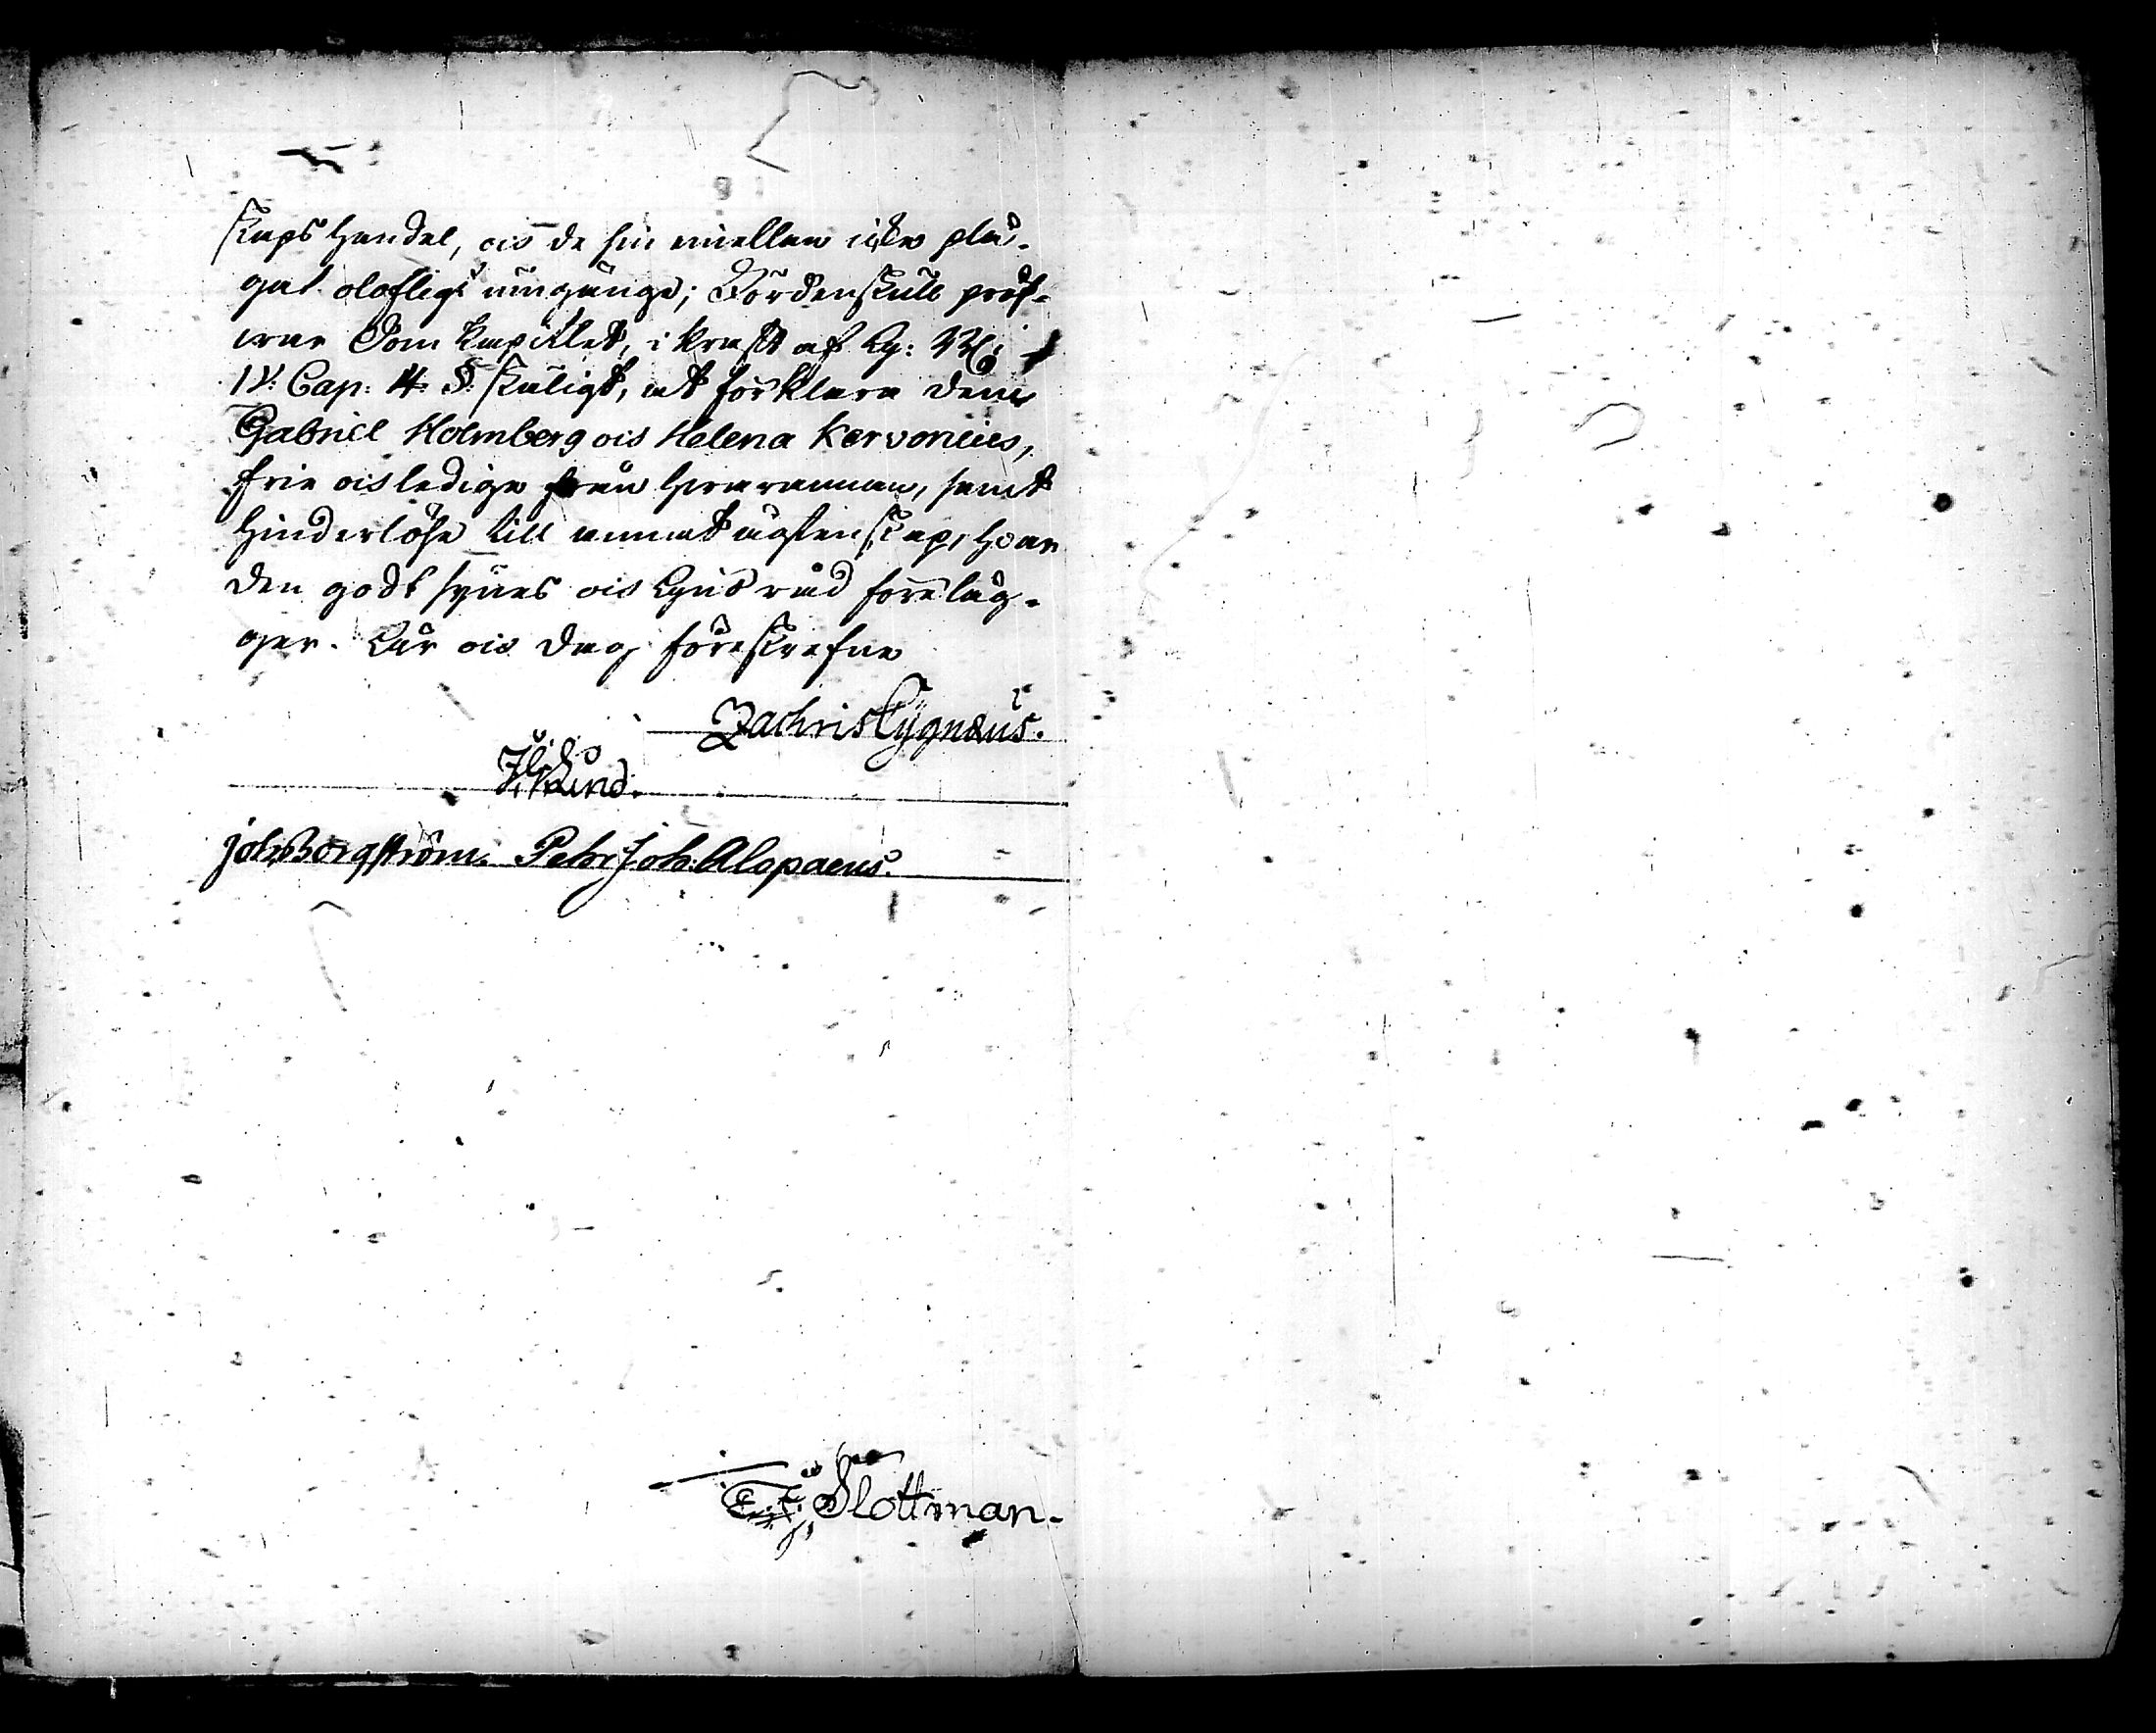 skaps handel, och de sin emellan icke plä-
gat olofligt umgänge; Fördenskull pröf-
war Dom Kapitlet, i kraft af Ky:
14: Cap: 4 §. skäligt, at förklara dem
Gabriel Holmberg och Helena Kervonen,
fria och lediga från hwarannan, samt
hinderlöse till annat ägtenskap, hwar
den godt synes och Gud råd före läg-
ger. Åhr och dag föreskrefne
Zachris Cygnæus.
Joh. Borgström. Pehr Joh: Alopaeus.
Slottman.